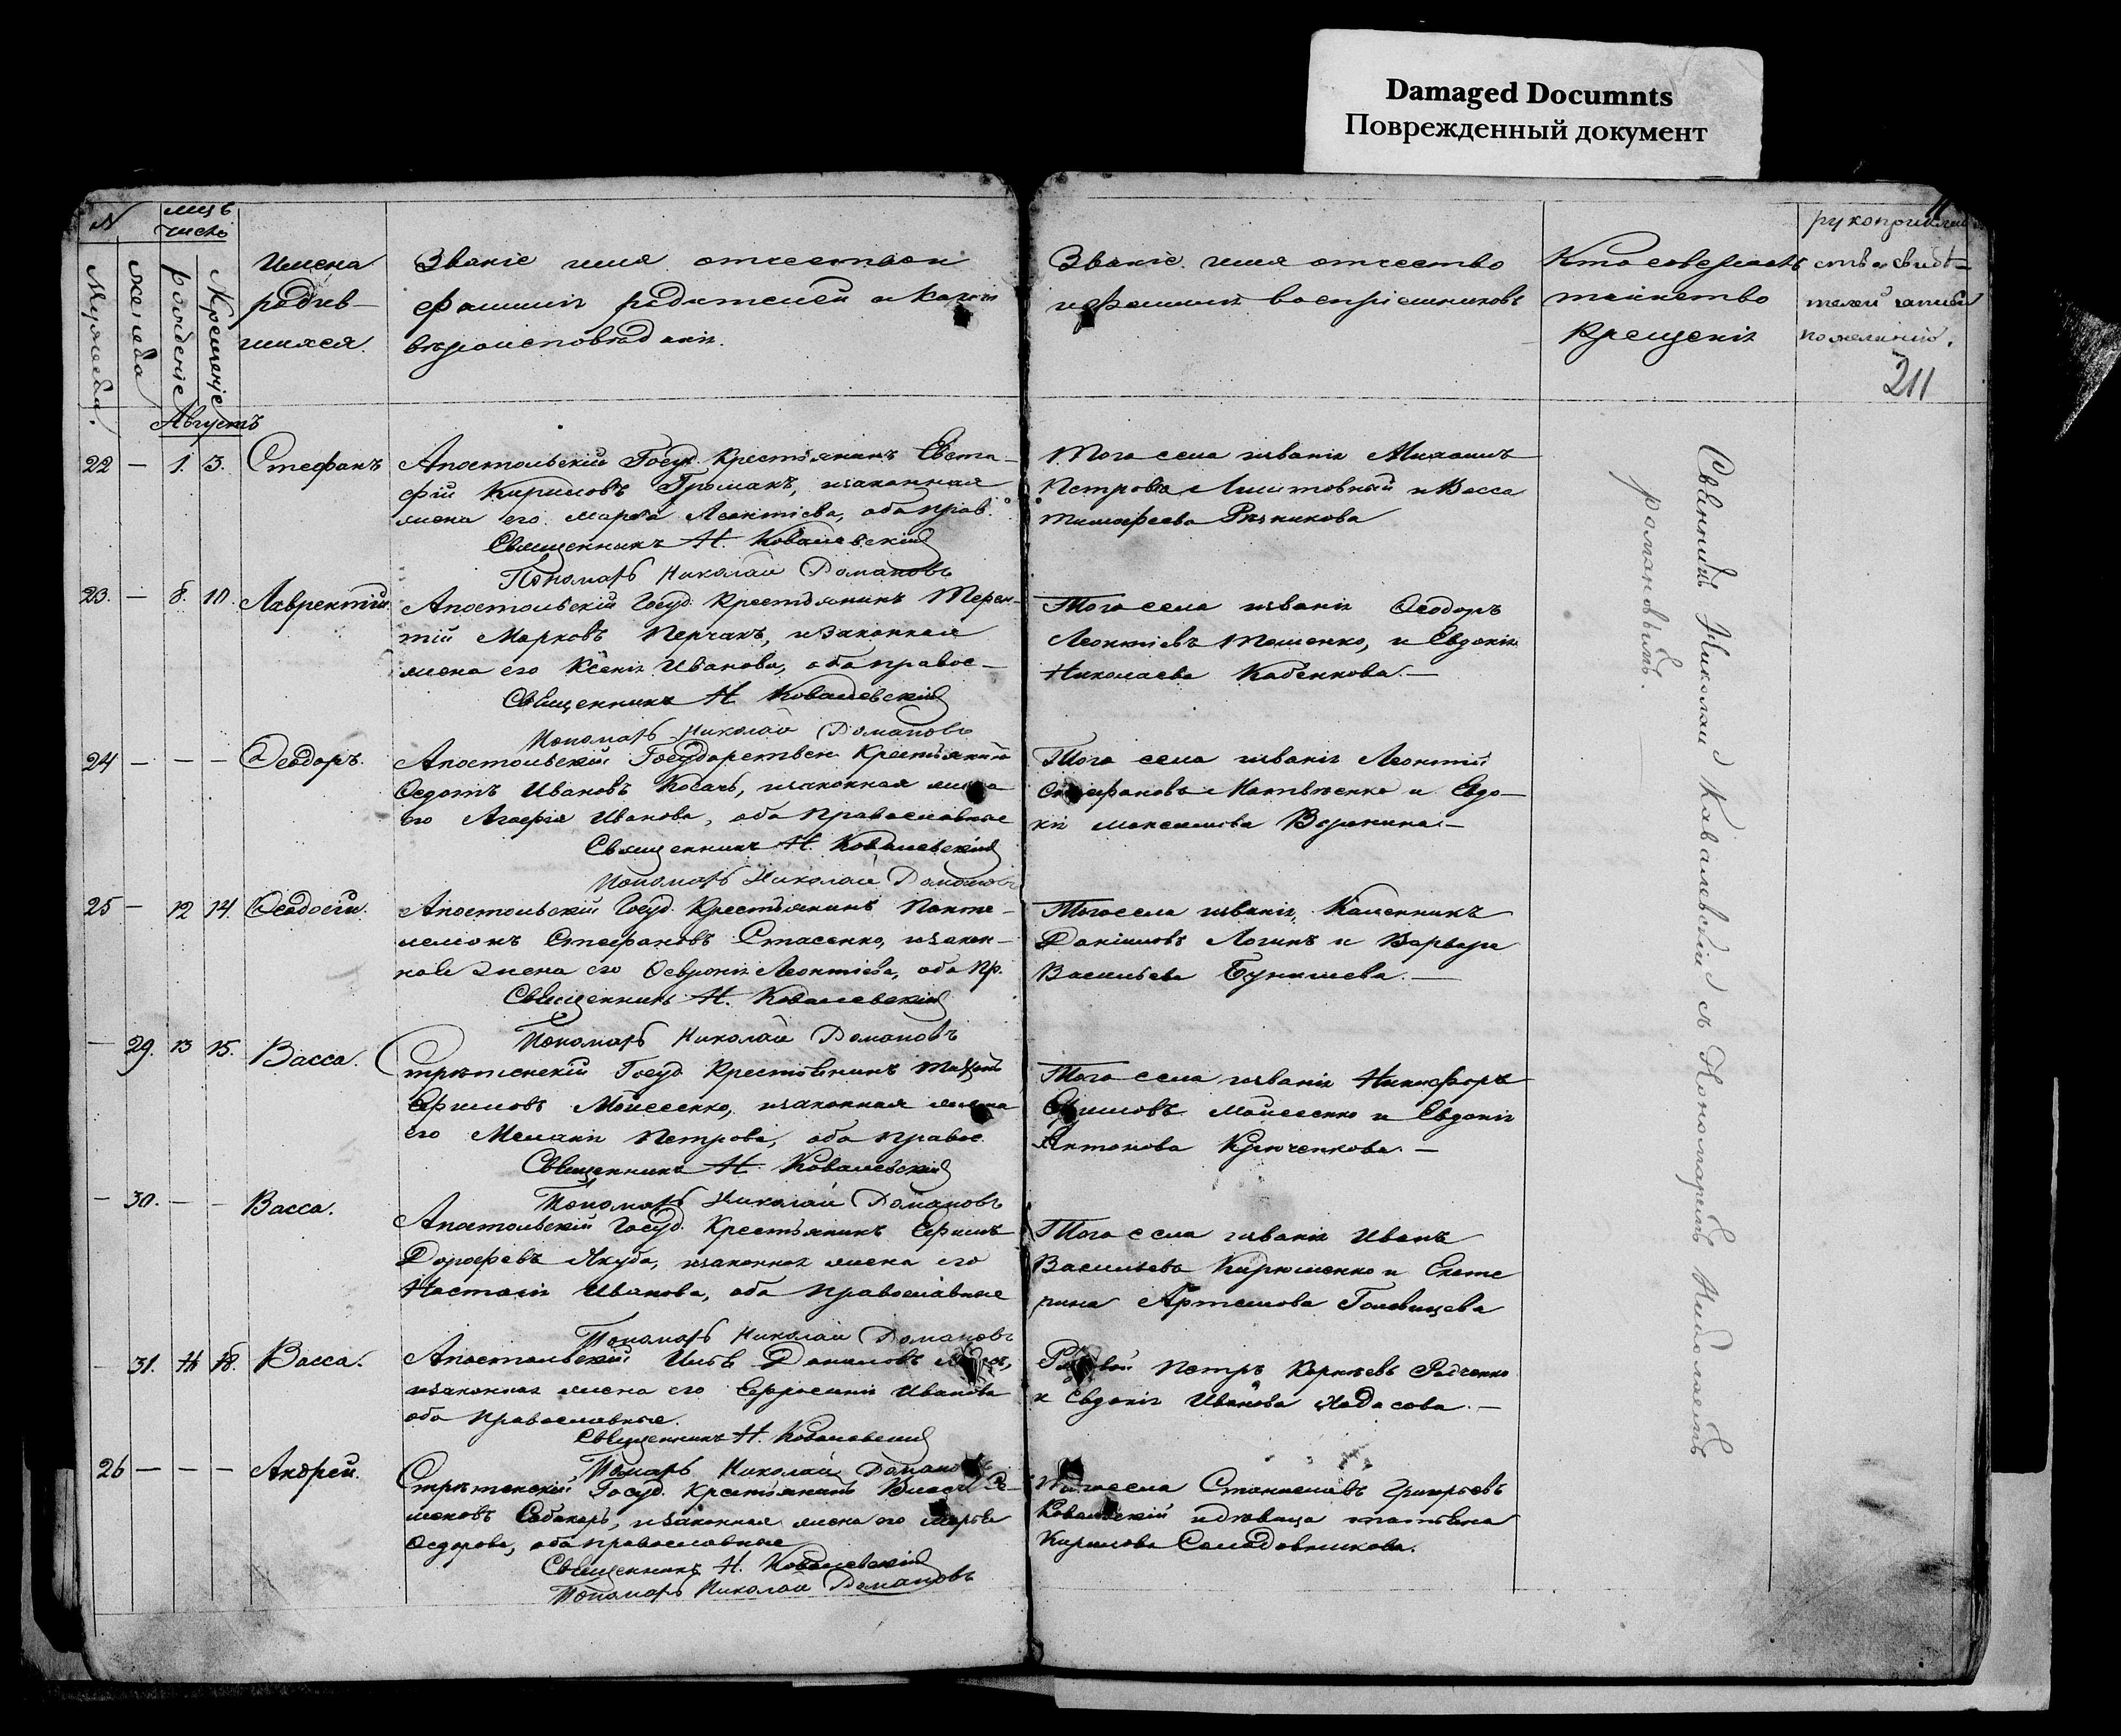 Damaged Documnts
Поврежденный документ
N
мужеска.
женска
мцъ
число
рожденіе
Крещеніе
Имена
родив-
шихся.
Званіе имя отчество и
фамилія родителей и какого
вѣроисповѣданія.
Званіе имя отчество
и фамилія воспріемниковъ
Кто совершалъ
таинство
Крещенія
рукоприклад
ство свидѣ-
телей записи
по желанію.
211
Августъ
22 — 1. 3. Стефанъ
Апостольскій Госуд. Крестьянинъ Евста-
фій Кириловъ, изаконная
жена его Марѳа Леонтіева, оба прав.
Священникъ Н. Ковалевскій
Пономарь Николай Романовъ
Того села званія Михаилъ
Петровъ Лиштовный и Васса
Тимофеева Рѣзникова
23. — 8. 10. Лаврентій
Апостольскій Госуд. Крестьянинъ Терен-
тій Марковъ Перчакъ, изаконная
жена его Ксенія Иванова, оба правос-
Священникъ Н Ковалевскій
Пономарь Николай Романовъ
Того села званія Ѳеодоръ
Леонтіевъ Тешенко, и Евдокія
Николаева Кабенкова. —
24 — — — Ѳеодоръ.
Апостольскій Государствен. Крестьянинъ
Ѳедотъ Ивановъ Косачъ, изаконная жена
его Агафія Иванова, оба Православные
Священникъ Н. Ковалевскій
Пономарь Николай Романовъ
Того села званія Леонтій
Стефановъ Матвѣенко и Евдо-
кія Максимова Воронина. —
25 — 12 14. Ѳеодосій.
Апостольскій Госуд. Крестьянинъ Панте-
леимонъ Стефановъ Стасенко, изакон-
ная жена его Ѳевронія Леонтіева, оба пр.
Священникъ Н. Ковалевскій
Пономарь Николай Романовъ
Того села званія, Калинникъ
Даніиловъ Логинъ и Варвара
Васильева —
— 29. 13 15. Васса.
Стрѣтенскій Госуд. Крестьянинъ
Ефимовъ Мойсеенко, изаконная жена
его Меланія Петрова, оба правос.
Священникъ Н. Ковалевскій
Пономарь Николай Романовъ
Того села званія Никифоръ
Ефимовъ Мойсеенко и Евдокія
Антонова —
— 30. — — Васса.
Апостольскій Госуд. Крестьянинъ Ефимъ
Дорофеевъ Якуба, изаконная жена его
Настасія Иванова, оба православные
Пономарь Николай Романовъ
Того села званія Иванъ
Васильевъ Кирюшенко и Екате
рина Артемова Головицева
— 31. 16 18. Васса.
Апостольскій Илья Даниловъ
изаконная жена его Ефросинія Иванова
оба православные.
Священникъ Н. Ковалевскій
Помарь Николай Романовъ
Рядовой Петръ Корнѣевъ Радченко
и Евдокія Иванова —
26 — — — Андрей.
Стрѣтенскій Госуд. Крестьянинъ Власъ Се-
меновъ, изаконная жена его Марѳа
Ѳедорова, оба православные
Священникъ Н. Ковалевскій
Пономарь Николай Романовъ
Того села Станиславъ Григорьевъ
Ковалевскій и дѣвица Татьяна
Кирилова Сападовникова.
Свѣнникъ Николай Ковалевскій съ Пономаремъ Николаемъ
романовымъ.